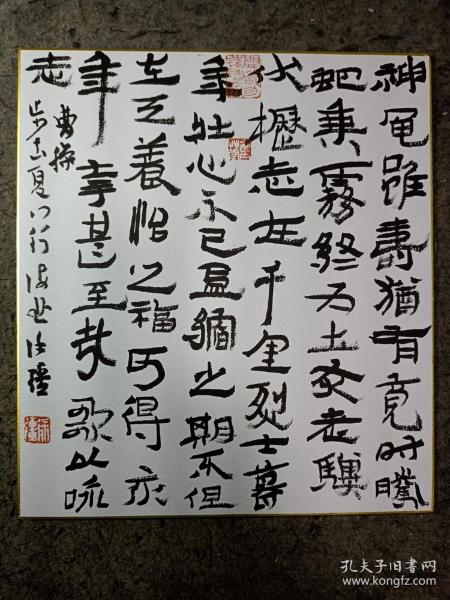 神龟雖壽猶有竟时騰
蛇乘霧終为土灰老驥
伏櫪志在千里烈士暮
年壯心不已盈縮之期不但
在天養怡之福可得永
年幸甚至哉歌以咏
志
曹操
步出夏门行
孔夫子旧书网
www.kongfz.com